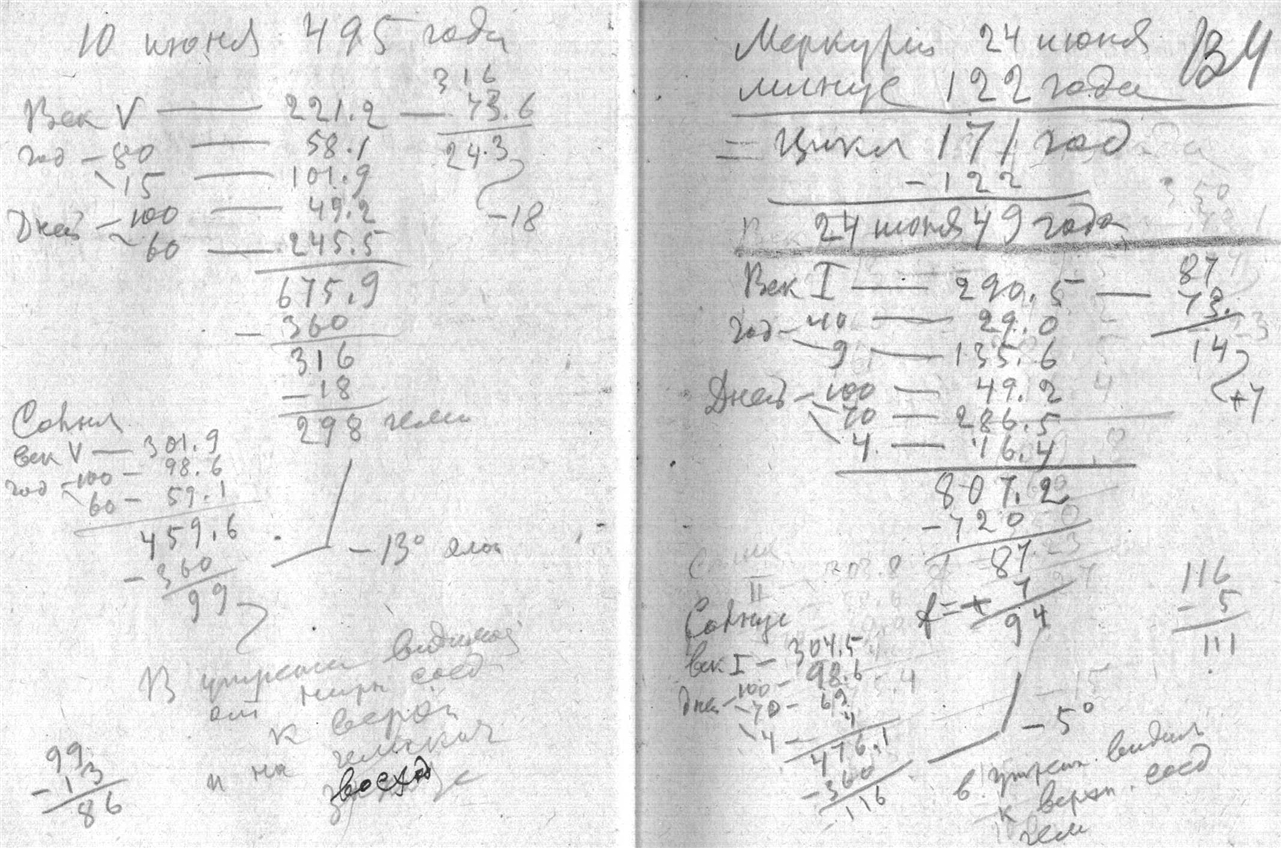 10 июня 495 года
316
Век V — 221.2 — 73.6
год - 80 — 58.1 24.3
15 — 101.9
Дней - 100 — 49.2 -18
60 — 245.5
675.9
- 360
316
- 18
298 гелио
Солнца
век V — 301.9
год - 100 - 98.6
60 - 59.1
459.6
- 360
99
- 13°
В утрени видимой
от нижн соед
к верхн
и на
восход
99
- 13
86
Меркурий 24 июня В4
минус 122 года
= Цикл 171 год
- 122
24 июня 49 года
Век I — 290.5 — 87
73.
год - 40 — 29.0
9 — 135.6 14
Дней - 100 — 49.2 +7
70 — 286.5
4 — 16.4
807.2
- 720
87
+ 7
94
116
- 5
111
Солнце
век I - 304.5
Дней - 100 - 98.6
70 - 69
4 - 4
476.1
- 360
116
- 15
- 5°
в. утрен. видим
к верхн. соед
гели